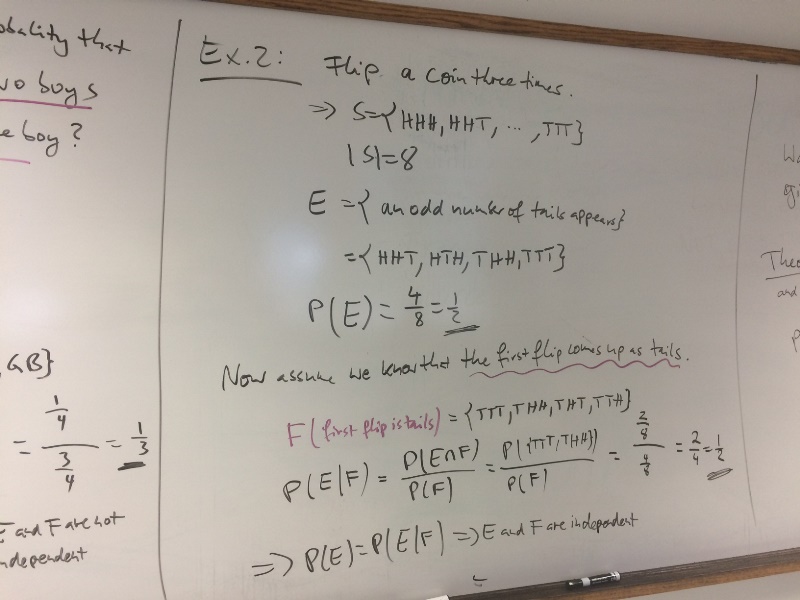 that
boys
boy?
GB}
= 1/4 / 3/4 = 1/3
E and F are not
independent
Ex. 2: Flip a coin three times.
⇒ S={HHH, HHT, ..., TTT}
|S|=8
E = { an odd number of tails appears}
={HHT, HTH, THH, TTT}
P(E) = 4/8 = 1/2
Now assume we know that the first flip comes up as tails.
F (first flip is tails) = {TTT, THH, THT, TTH}
P(E|F) = P(E∩F)/P(F) = P({TTT, THH})/P(F) = 2/8 / 4/8 = 2/4 = 1/2
⇒ P(E)=P(E|F) ⇒ E and F are independent
and